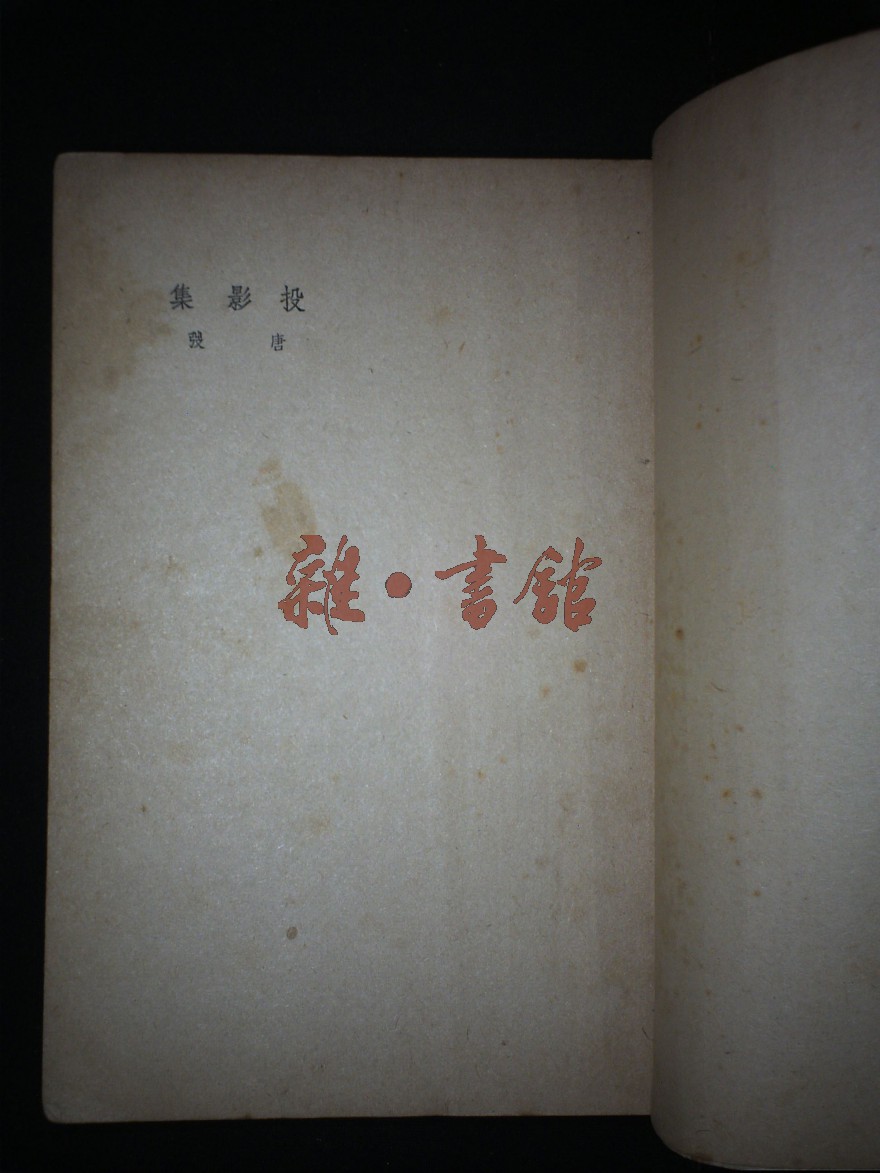 投影集
唐弢
雜·書舘